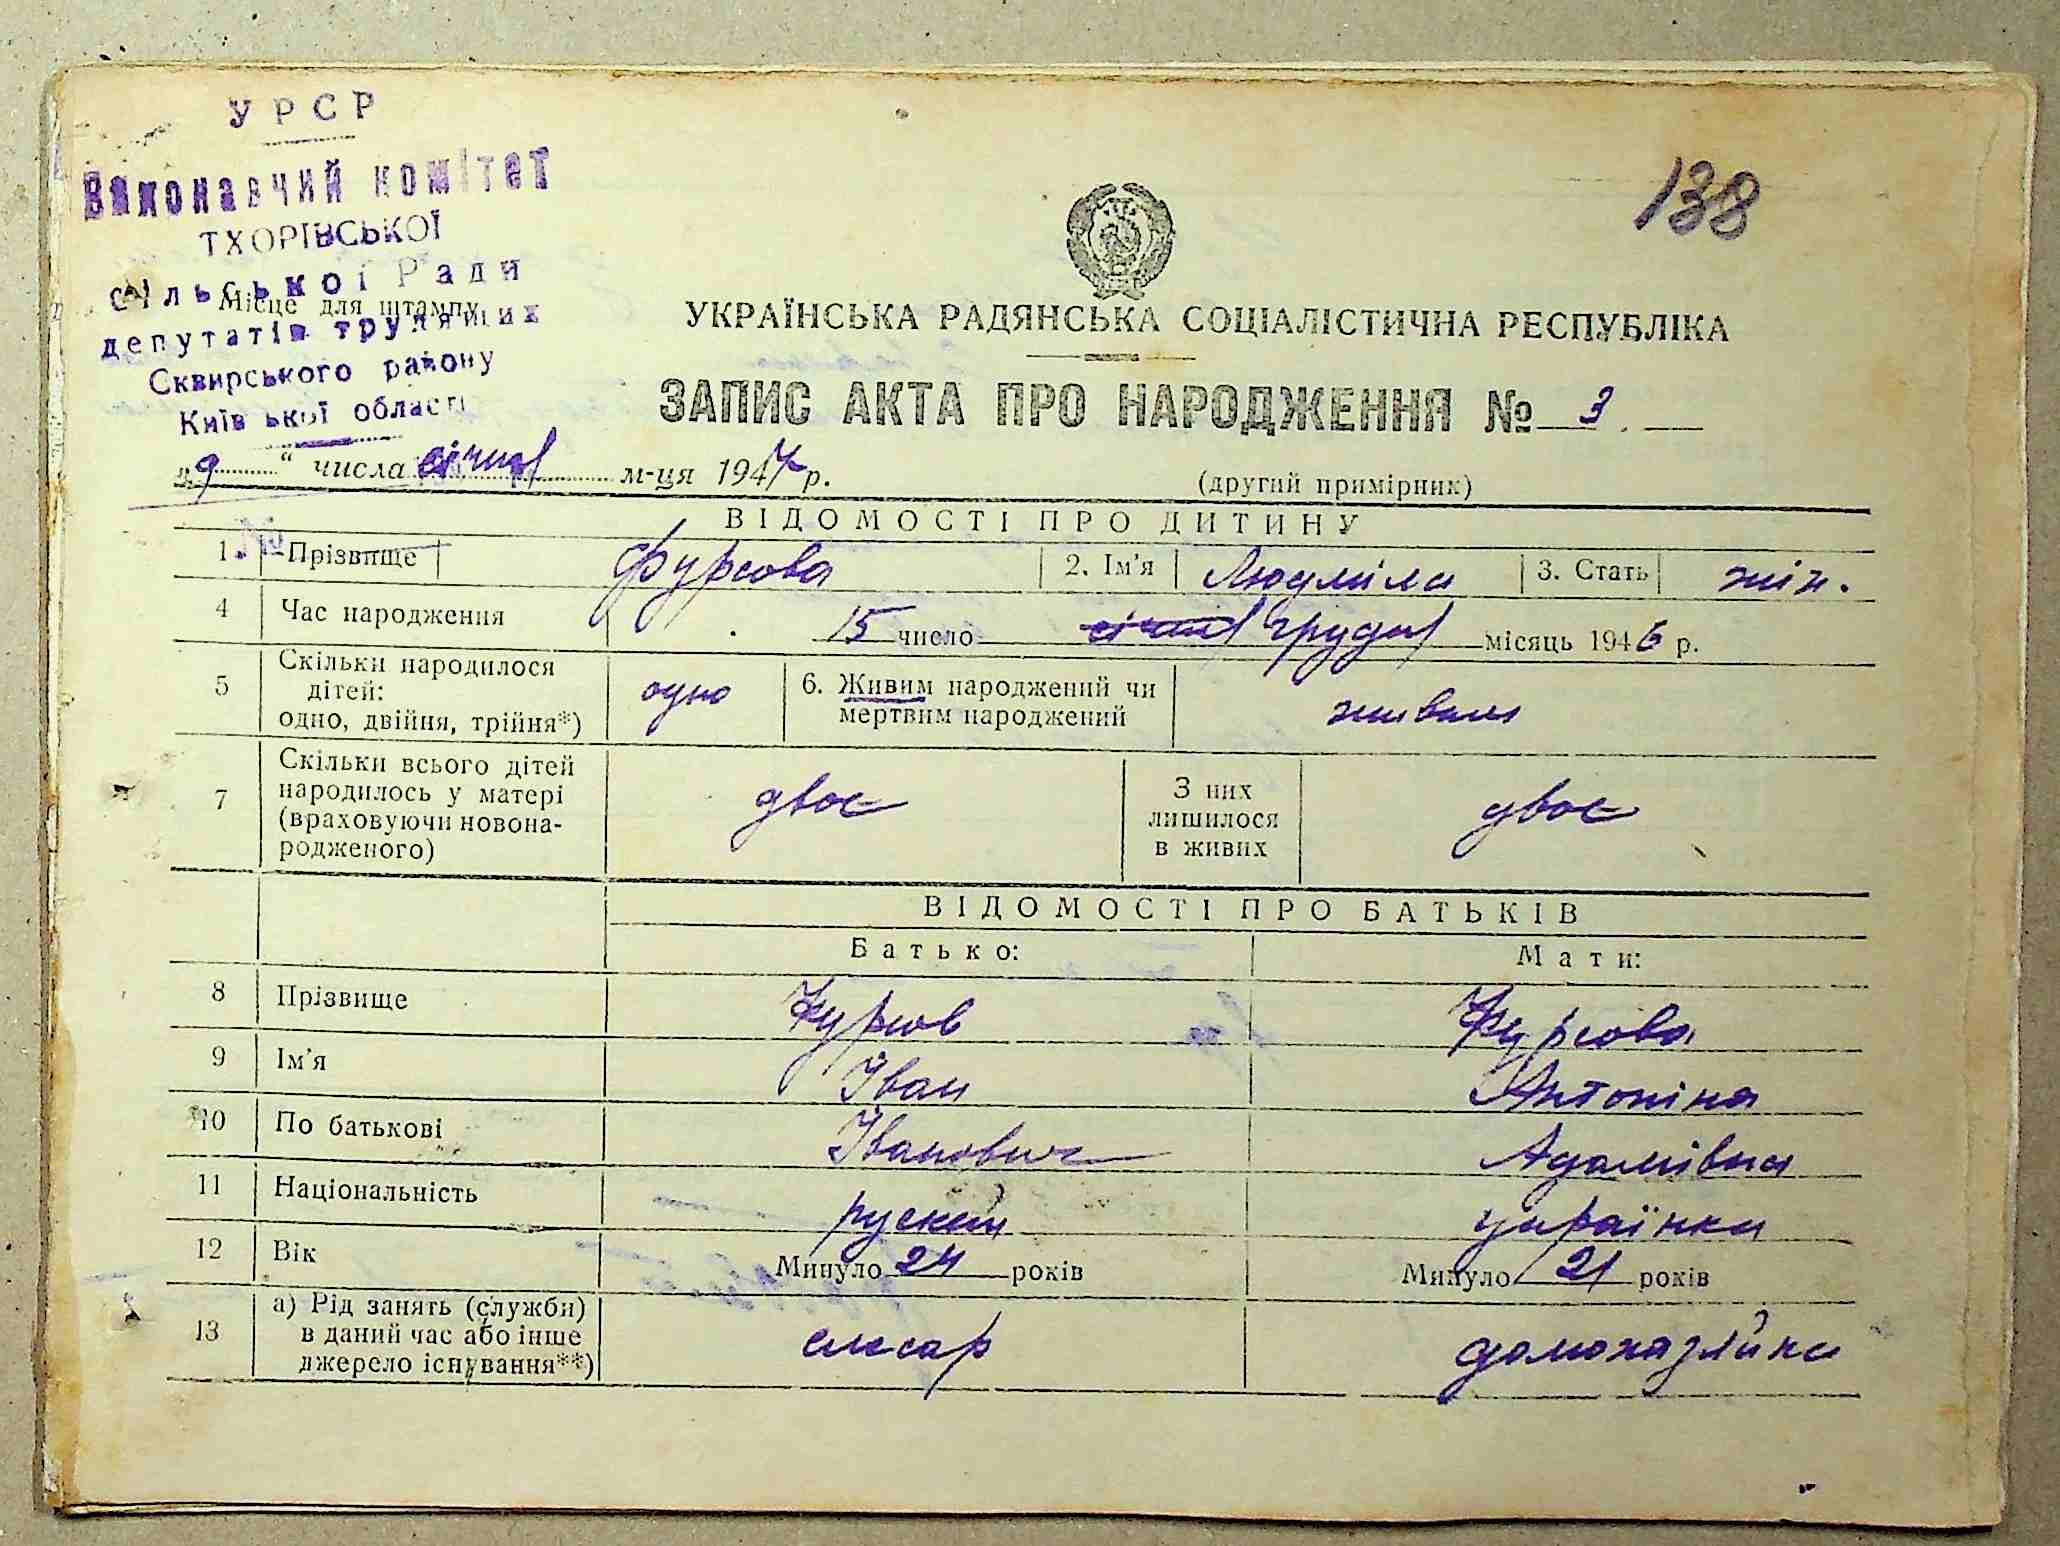 УРСР
Виконавчий комітет
ТХОРІВСЬКОЇ
сільської Ради
Місце для штампу
депутатів трудящих
Сквирського району
Київської області
138
УКРАЇНСЬКА РАДЯНСЬКА СОЦІАЛІСТИЧНА РЕСПУБЛІКА
ЗАПИС АКТА ПРО НАРОДЖЕННЯ № 3.
„9“ числа січня м-ця 1947 р.
(другий примірник)
ВІДОМОСТІ ПРО ДИТИНУ
1. Прізвище Фурсова 2. Ім'я Людміла 3. Стать жін.
4 Час народження 15 число січня грудня місяць 1946 р.
5 Скільки народилося дітей: одно, двійня, трійня*) одно 6. Живим народжений чи мертвим народжений живим
7 Скільки всього дітей народилось у матері (враховуючи новонародженого) двоє З них лишилося в живих двоє
ВІДОМОСТІ ПРО БАТЬКІВ
Батько: Мати:
8 Прізвище Фурсов Фурсова
9 Ім'я Іван Антоніна
10 По батькові Іванович Адамівна
11 Національність руский українка
12 Вік Минуло 24 років Минуло 21 років
13 а) Рід занять (служби) в даний час або інше джерело існування**) слюсар домохазяйка